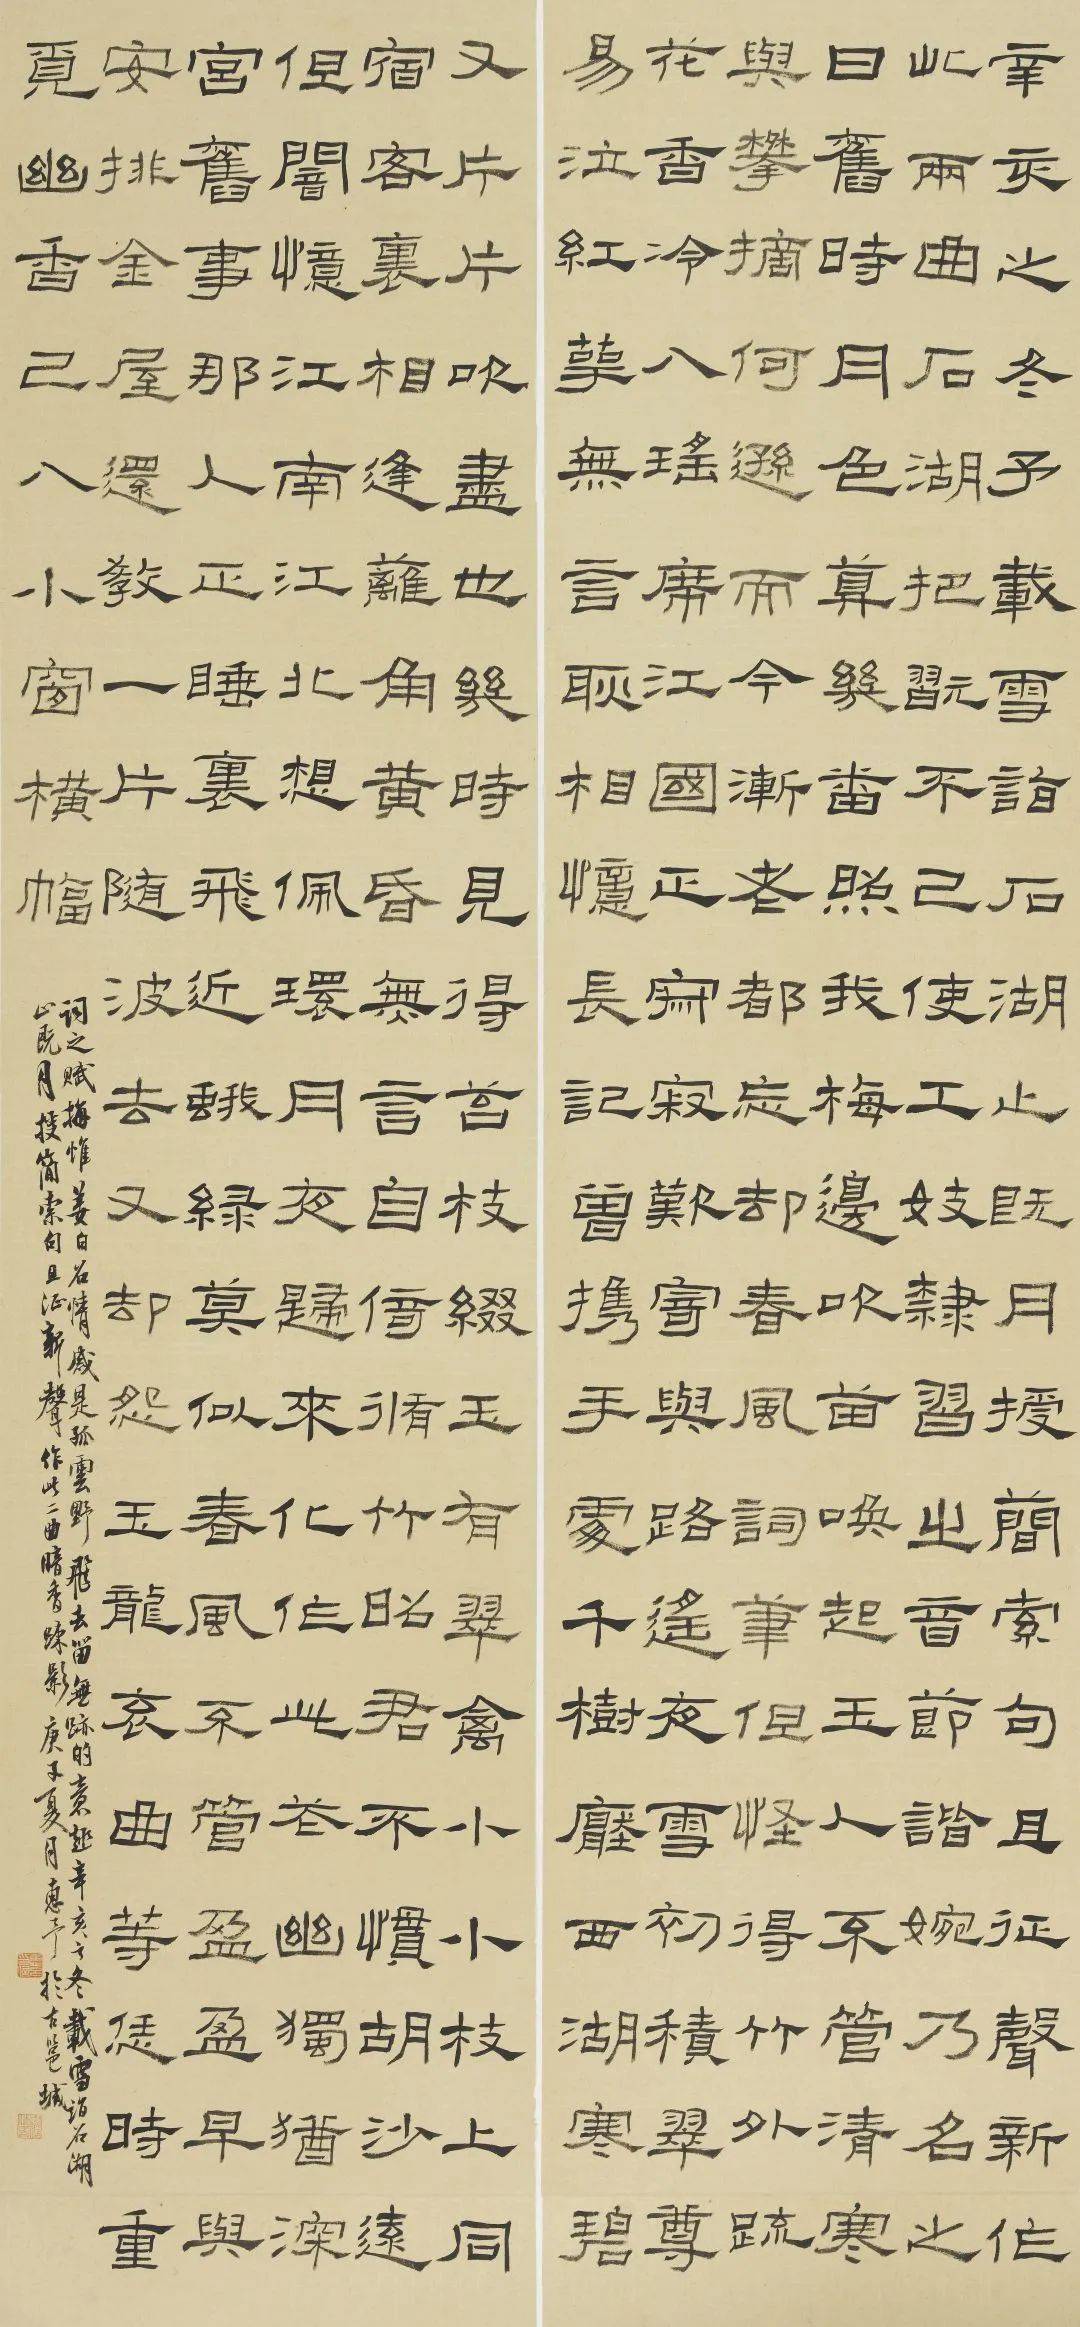 辛亥之冬予載雪詣石湖止既月授簡索句且征聲新作
此兩曲石湖把翫不已使工妓隸習之音節諧婉乃名之
曰舊時月色算幾番照我梅邊吹笛喚起玉人不管清寒
與攀摘何遜而今漸老都忘却春風詞筆但怪得竹外疏
花香冷入瑤席江國正寂寂歎寄與路遙夜雪初積翠尊
易泣紅萼無言耿相憶長記曾攜手處千樹壓西湖寒碧
又片片吹盡也幾時見得苔枝綴玉有翠禽小小枝上同
宿客裏相逢籬角黃昏無言自倚脩竹昭君不慣胡沙遠
但闇憶江南江北想佩環月夜歸來化作此花幽獨猶深
宮舊事那人正睡裏飛近蛾綠莫似春風不管盈盈早與
安排金屋還教一片隨波去又却怨玉龍哀曲等恁時重
覓幽香已入小窗橫幅
詞之賦梅惟姜白石情感是孤雲野飛去留無跡的意趣辛亥之冬載雪詣石湖
止既月授簡索句且征新聲作此二曲暗香疏影庚子夏月惠予於古邕城